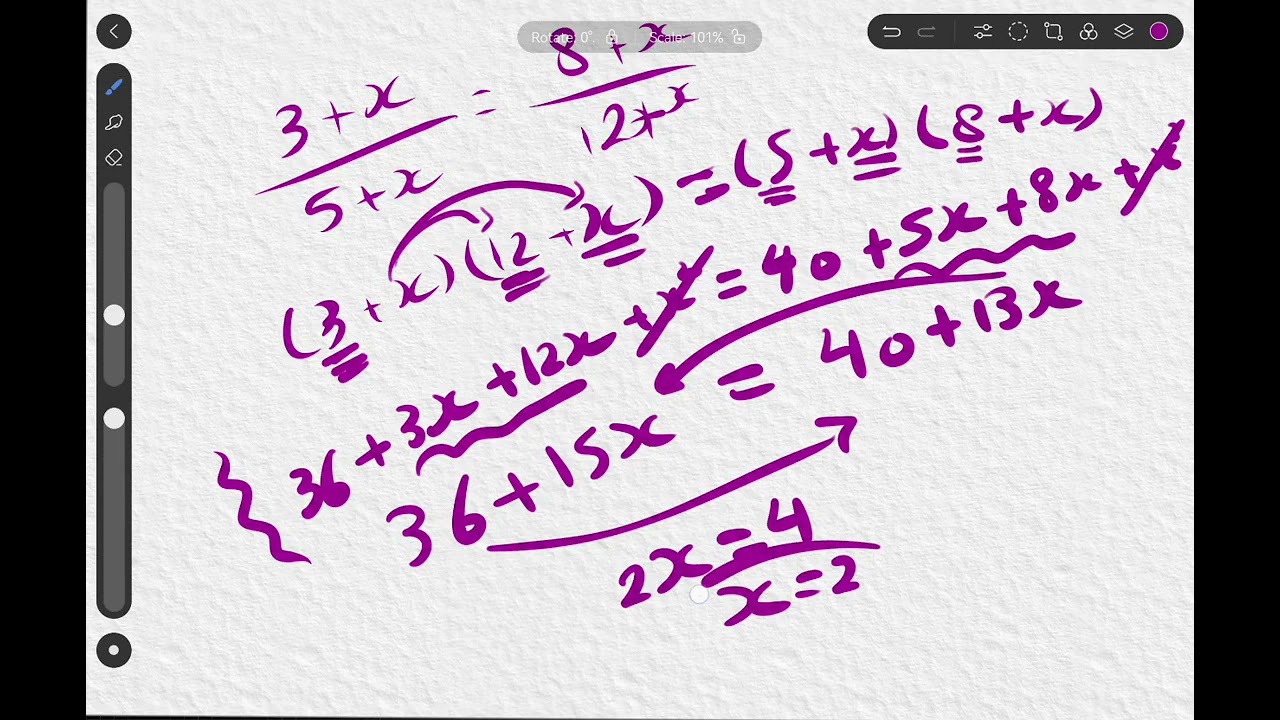 Rotate: 0° Scale: 101%
3+x/5+x = 8+x/12+x
(3+x)(12+x) = (5+x)(8+x)
36+3x+12x+x² = 40+5x+8x+x²
36+15x = 40+13x
2x=4
x=2